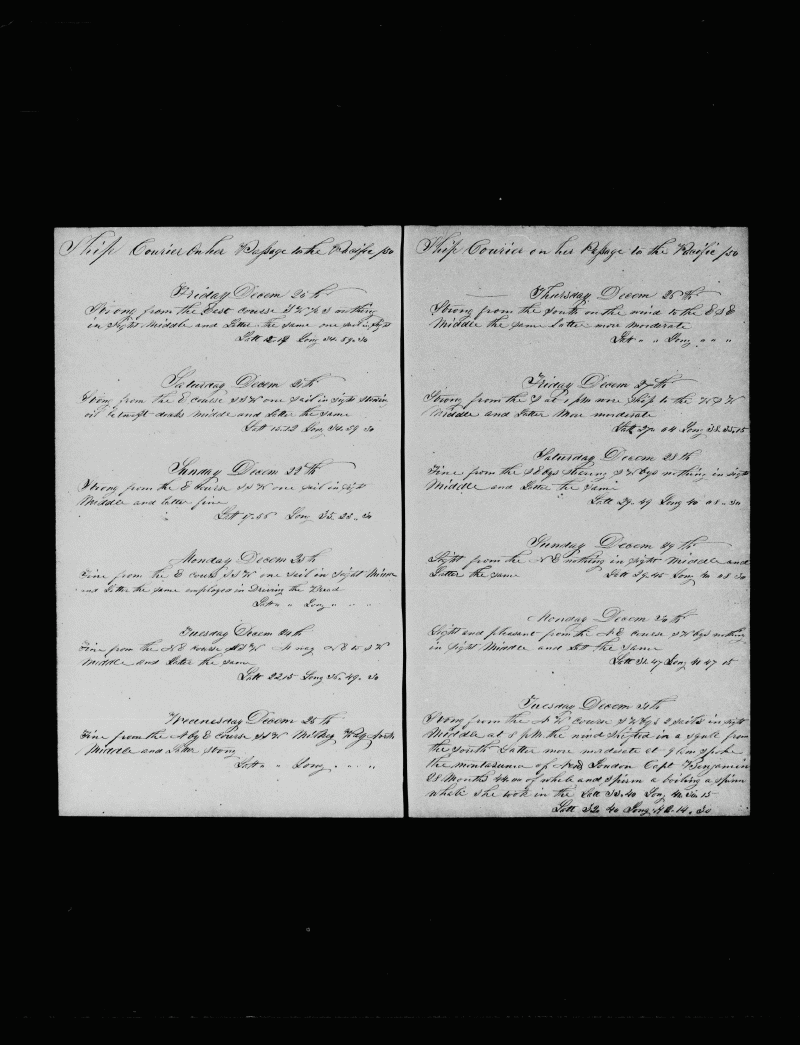 Ship Courier on her Passage to the Pacific
Friday Decem 20th
Strong from the East course nothing
in sight Middle and Latter the same one sail in sight
Latt Long 34. 59. 30
Saturday Decem 21th
Strong from the E course S S W one sail in sight
oil betwixt decks Middle and Latter the same
Latt 15.52 Long 34. 59 30
Sunday Decem 22th
Strong from the E Course S S W one sail in sight
Middle and latter fine
Latt Long 35. 22. 30
Monday Decem 23th
Fine from the E course S S W one sail in sight Middle
and Latter the same employed in Driving the
Latt " " Long " " "
Tuesday Decem 24th
Fine from the N E course S S W N E to S W
Middle and Latter the same
Latt 22 15 Long 36. 49. 30
Wednesday Decem 25th
Fine from the N by E course S S W
Middle and Latter strong
Latt " Long " " "
Ship Courier on her Passage to the Pacific
Thursday Decem 26th
Strong from the South on the wind to the E S E
Middle the same Latter more moderate
Latt " " Long " " "
Friday Decem 27th
Strong from the S at 1 PM one Ship to the
Middle and Latter More moderate
Latt 27. 04 Long 38. 35. 15
Saturday Decem 28th
Fine from the Steering nothing in sight
Middle and Latter the same
Latt 29. 49 Long 40 08. 30
Sunday Decem 29th
Light from the N E nothing in sight Middle and
Latter the same Latt 29. 45 Long 40 08 30
Monday Decem 30th
Light and pleasant from the N E course nothing
in sight Middle and Latt the same
Latt 31. 47 Long 41 47 15
Tuesday Decem 31th
Strong from the N W course 2 sails in sight
Middle at 8 PM the wind shifted in a squall from
the South Latter more moderate at 9 AM spoke
the montazuma of New London Capt Benjamin
28 Months of whale and sperm a boiling a sperm
whale she took in the Latt 33. 40 Long
Latt 32 40 Long 42. 14. 30